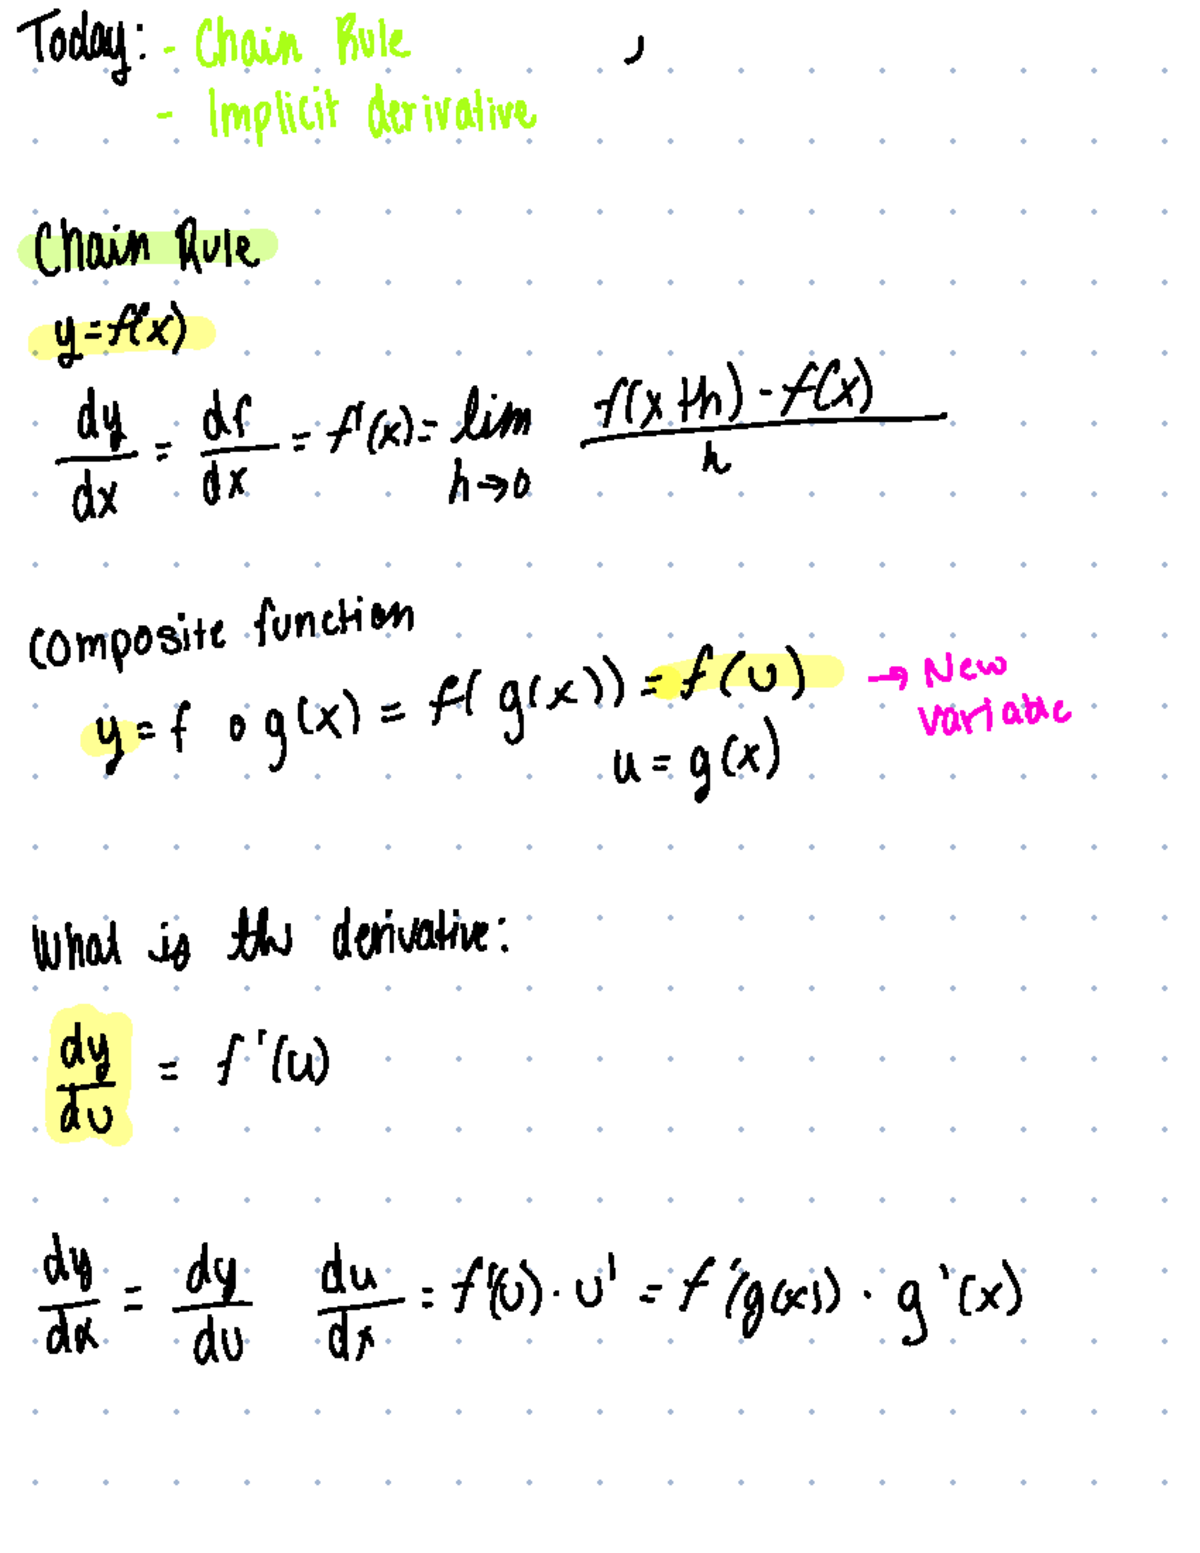 Today: - Chain Rule
- Implicit derivative
Chain Rule
y = f(x)
dy/dx = df/dx = f'(x) = lim h→0 f(x+h) - f(x) / h
composite function
y = f ∘ g(x) = f(g(x)) = f(u) → New variable
u = g(x)
What is the derivative:
dy/du = f'(u)
dy/dx = dy/du du/dx = f'(u) · u' = f'(g(x)) · g'(x)